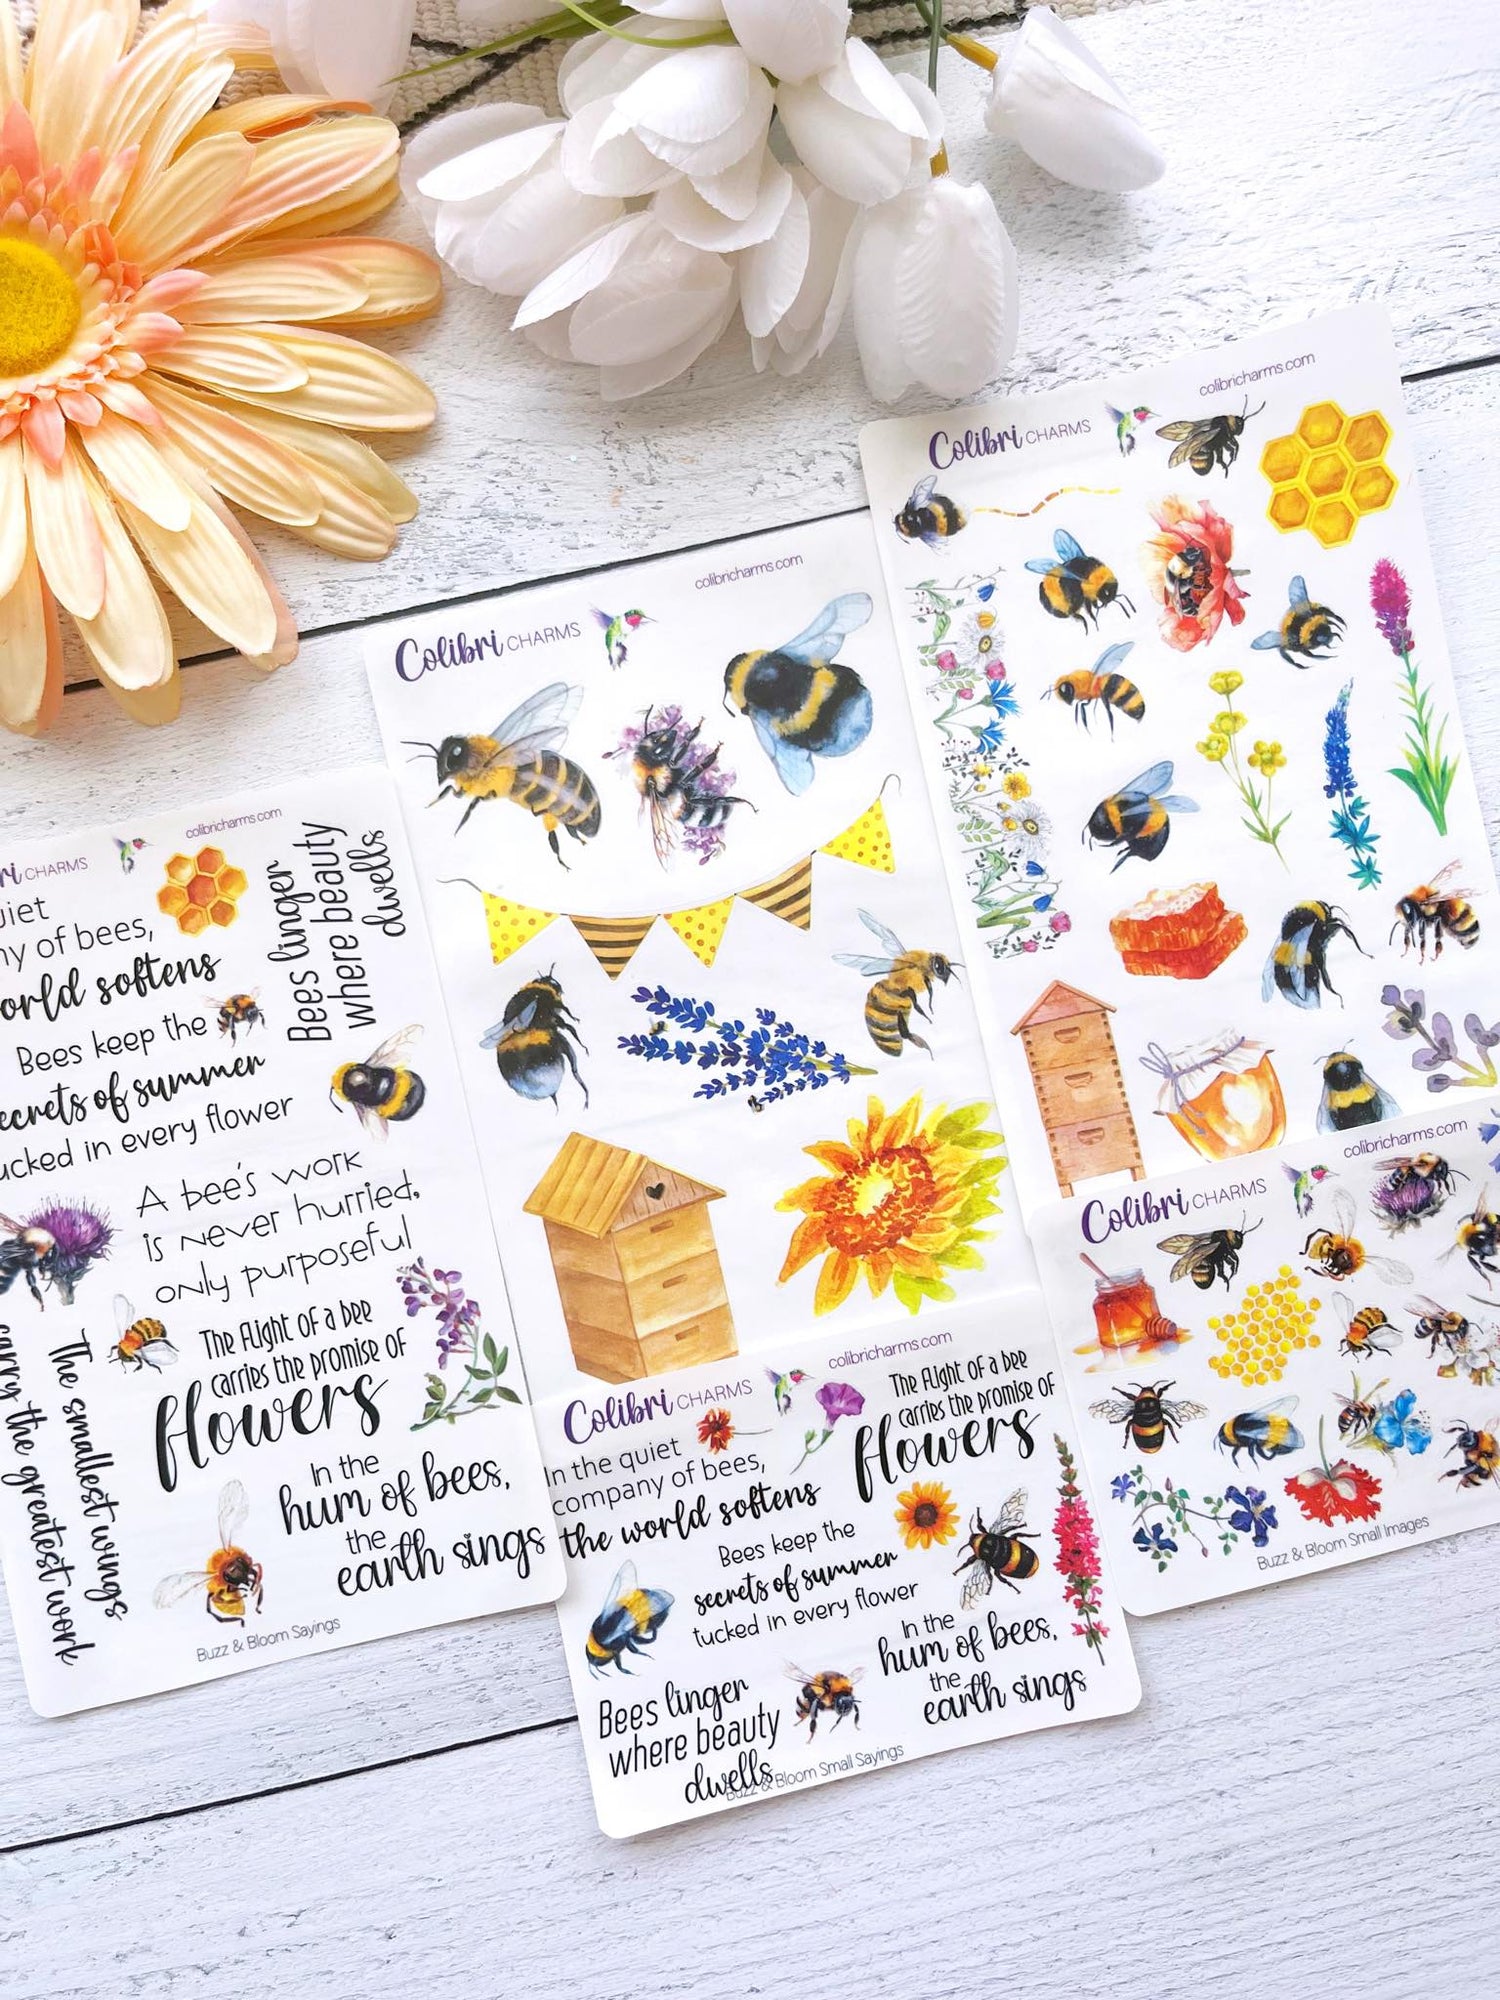 colibricharms.com
Colibri CHARMS
colibricharms.com
Colibri CHARMS
colibricharms.com
CHARMS
of bees,
softens
Bees keep the
of summer
in every flower
Bees linger
where beauty
dwells
A bee's work
is never hurried,
only purposeful
The flight of a bee
carries the promise of
flowers
The smallest wings
carry the greatest work
In the
hum of bees,
the
earth sings
Buzz & Bloom Sayings
colibricharms.com
Colibri CHARMS
In the quiet
company of bees,
the world softens
The flight of a bee
carries the promise of
flowers
Bees keep the
secrets of summer
tucked in every flower
In the
hum of bees,
the
earth sings
Bees linger
where beauty
dwells
Buzz & Bloom Small Sayings
colibricharms.com
Colibri CHARMS
Buzz & Bloom Small Images